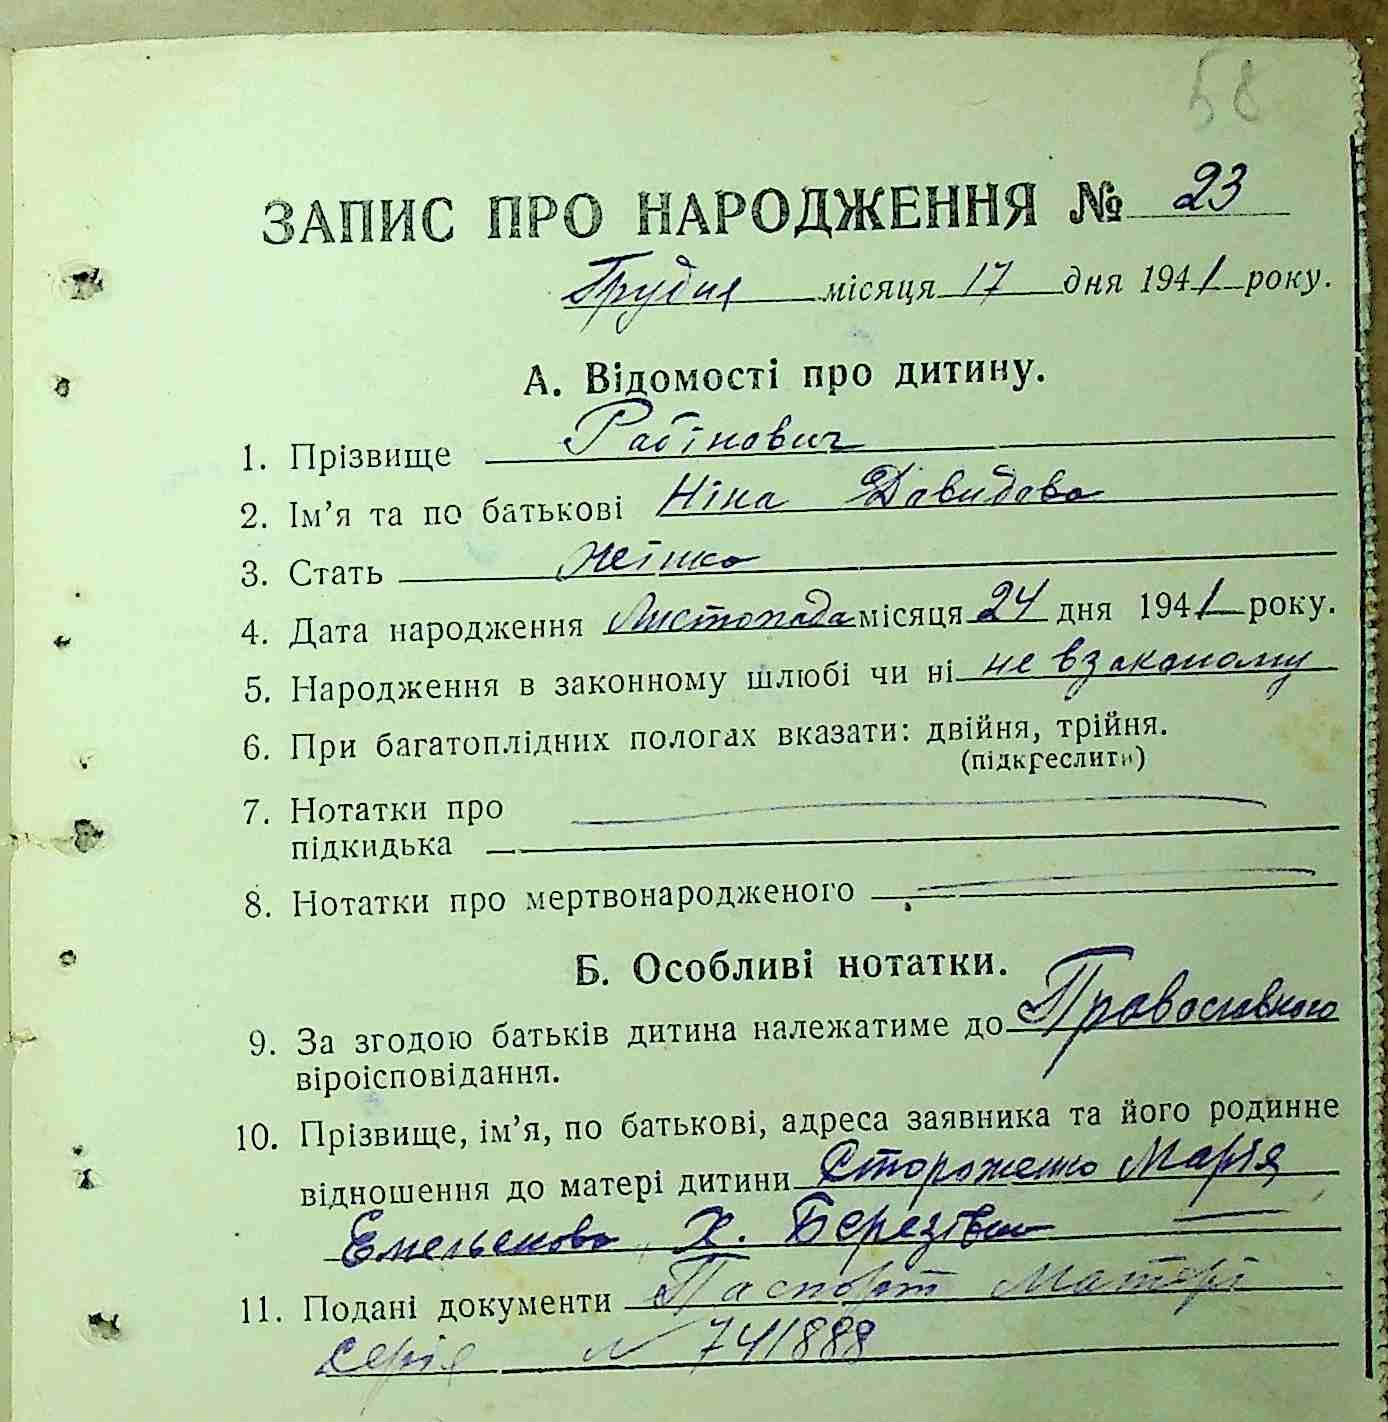 58
ЗАПИС ПРО НАРОДЖЕННЯ № 23
Грудня місяця 17 дня 1941 року.
А. Відомості про дитину.
1. Прізвище Рабінович
2. Ім’я та по батькові Ніна Давидова
3. Стать жінка
4. Дата народження Листопада місяця 24 дня 1941 року.
5. Народження в законному шлюбі чи ні не в законому
6. При багатоплідних пологах вказати: двійня, трійня.
(підкреслити)
7. Нотатки про
підкидька
8. Нотатки про мертвонародженого
Б. Особливі нотатки.
9. За згодою батьків дитина належатиме до Православного
віроісповідання.
10. Прізвище, ім’я, по батькові, адреса заявника та його родинне
відношення до матері дитини Стороженко Марія
Емельенова Х. Березівка
11. Подані документи Паспорт Матері
серія № 741888